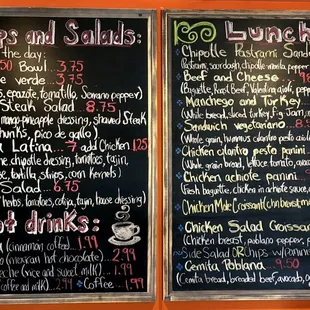 ps and Salads:
the day:
50 Bowl... 3.75
e verde... 3.75
s, epazote, tomatillo, Serrano pepper)
Steak Salad 8.75
mango-pineapple dressing, shaved Steak
hunks, pico de gallo)
a Latina...7 add Chicken 1.25
he chipotle dressing, tomatoes, tajin,
se, tortilla strips, corn Kernels)
Salad... 6.75
bs, tomatoes, cotija, tajin, house dressing)
ot drinks:
a (cinnamon coffee)... 1.99
(mexican hot chocolate) 2.99
leche (rice and sweet milk)... 1.99
(coffee and milk)... 2.99 • Coffee... 1.99
Lunch
Chipotle Pastrami Sand
(Pastrami, sourdash, chipotle
Beef and Cheese... 9
(Baguette, Roast Beef,
Manchego and Turkey
(White bread, sliced turkey, Fig Jam,
Sandwich vegetariano... 8.
(Whole grain, hummus, cilantro pesto
Chicken cilantro pesto panini
(Whole grain bread, lettuce, tomato, avoca
Chicken achiote panini... 8
(Fresh baguette, chicken in achiote sauce,
Chicken Mole Croissant (chx breast, mo
Chicken Salad Croissan
(Chicken breast, poblano pepper,
Side Salad OR chips w/
Cemita Poblana... 9.50
(Cemita bread, breaded beef, avocado,